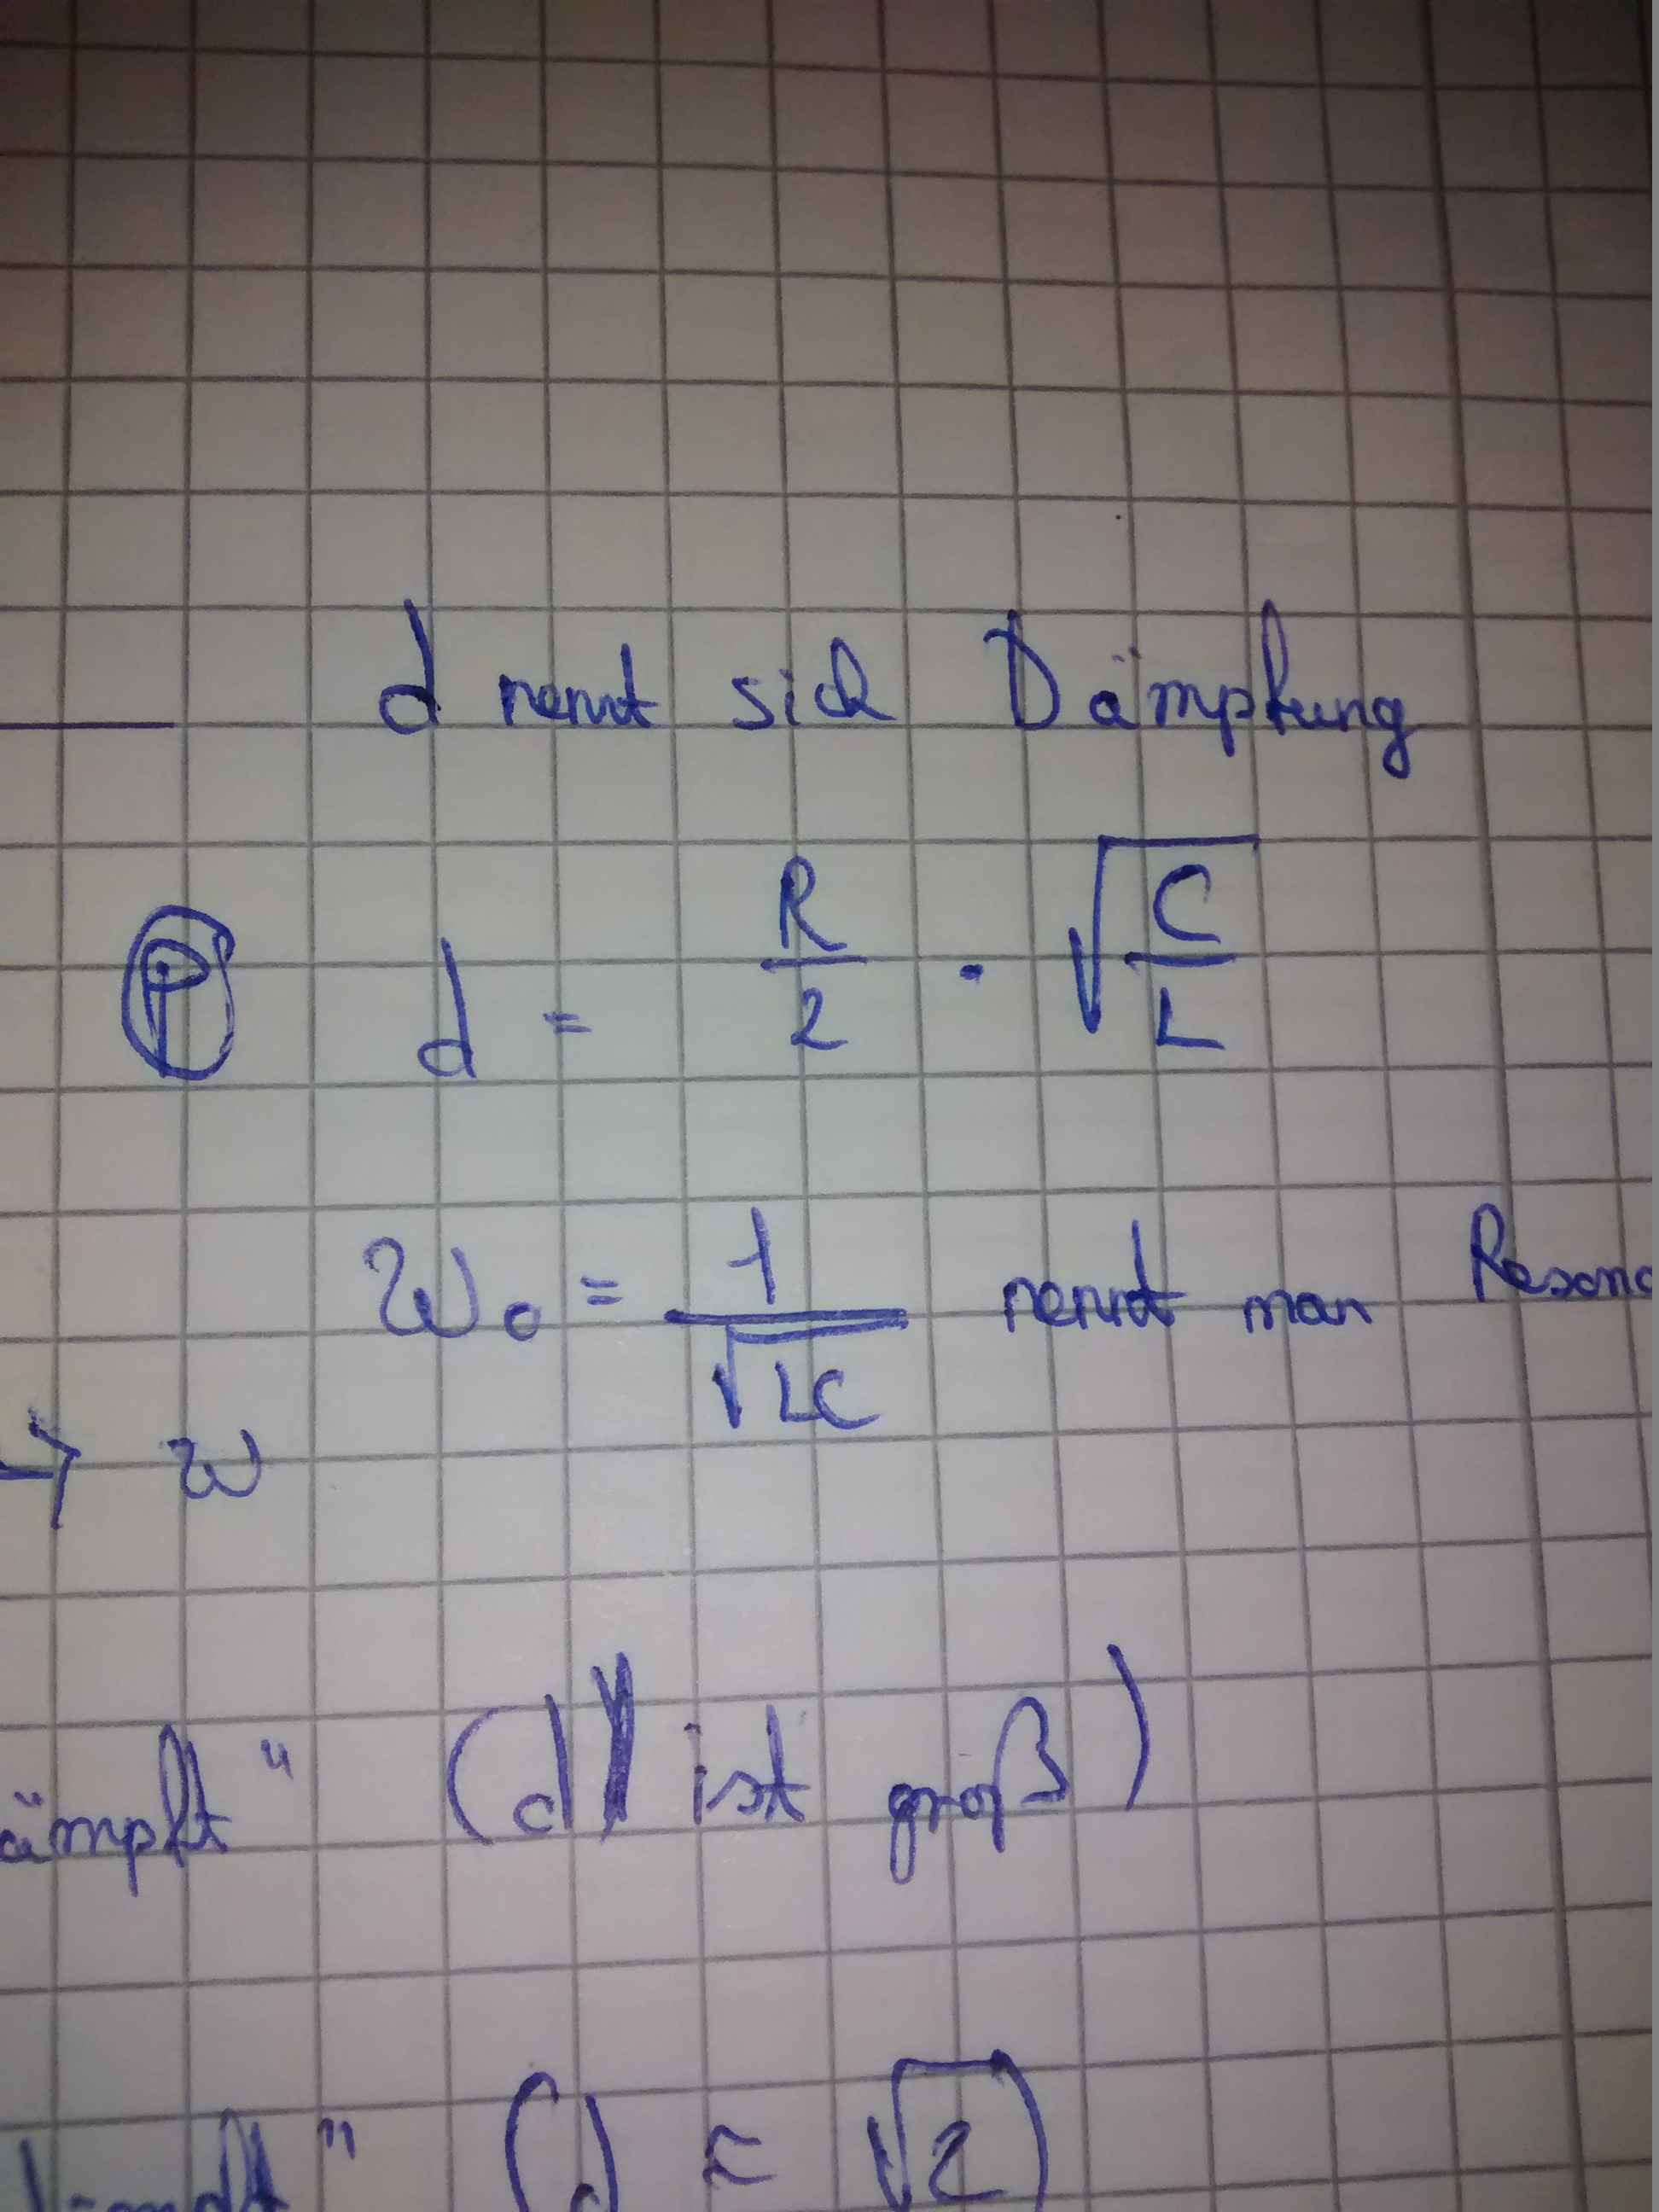 d nennt sich Dämpfung
Ⓟ d = R/2 · √(C/L)
ω₀ = 1/√LC nennt man Resona
→ ω
ämpft" (d ist groß)
(d = √2)